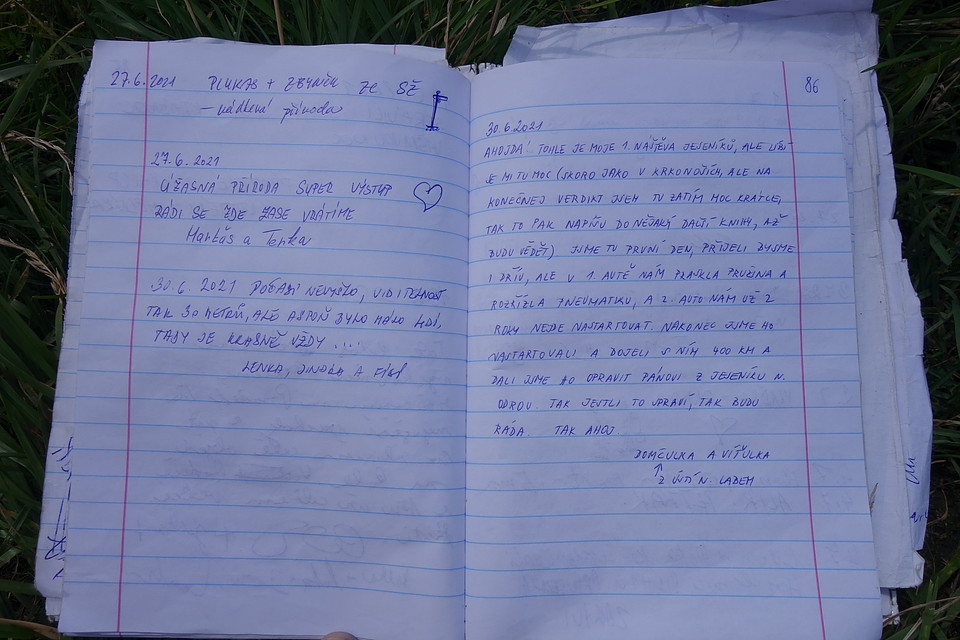 27.6.2021 PLUKAS + ZBYNĚK ZE SŽ
– nádherná příroda
27.6.2021
ÚŽASNÁ PŘÍRODA SUPER VÝSTUP
RÁDI SE ZDE ZASE VRÁTÍME
a Terka
30.6.2021 POČASÍ NEVYŠLO, VIDITELNOST
TAK 30 METRŮ, ALE ASPOŇ BYLO MÁLO LIDÍ,
TADY JE KRÁSNĚ VŽDY ....
LENKA, JINDRA A
86
30.6.2021
AHOJDA! TOHLE JE MOJE 1. NÁVŠTĚVA JESENÍKŮ, ALE LÍBÍ
SE MI TU MOC (SKORO JAKO V KRKONOŠÍCH, ALE NA
KONEČNEJ VERDIKT JSEM TU ZATÍM MOC KRÁTCE,
TAK TO PAK NAPÍŠU DO NĚJAKÝ DALŠÍ KNIHY, AŽ
BUDU VĚDĚT) JSME TU PRVNÍ DEN, PŘIJELI BYSME
I DŘÍV, ALE V 1. AUTĚ NÁM PRASKLA PRUŽINA A
ROZŘÍZLA PNEUMATIKU, A 2. AUTO NÁM UŽ 2
ROKY NEJDE NASTARTOVAT. NAKONEC JSME HO
NASTARTOVALI A DOJELI S NÍM 400 KM A
DALI JSME HO OPRAVIT PÁNOVI Z JESENÍKU N.
ODROU. TAK JESTLI TO SPRAVÍ, TAK BUDU
RÁDA. TAK AHOJ.
DOMČULKA A VÍŤULKA
↑ Z ÚSTÍ N. LABEM